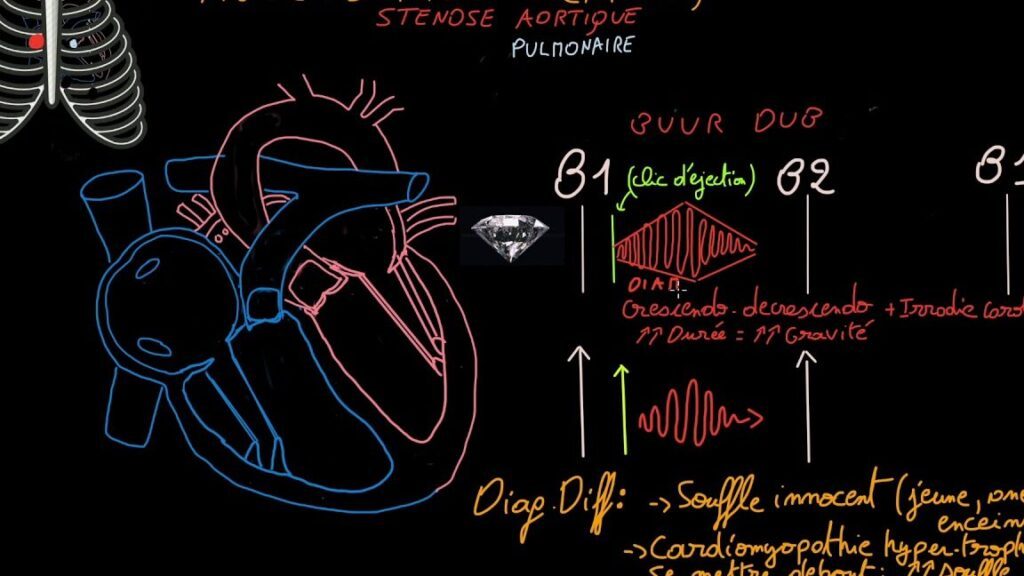 STENOSE AORTIQUE
PULMONAIRE
BUUR DUB
B1 (clic d'éjection) B2 B1
DIAM
Crescendo-decrescendo + Irradie
↑↑ Durée = ↑↑ Gravité
Diag. Diff: → Souffle innocent (jeune,
→ Cardiomyopathie hyper-troph
se mettre debout: ↑↑ souffle